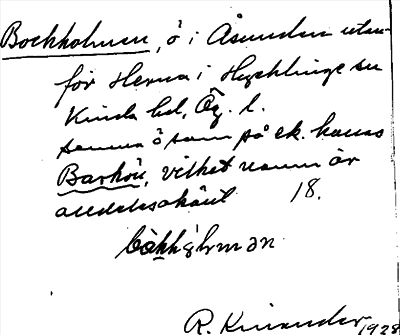 Bockholmen, ö i Åsunden utan-
för Herna i Hycklinge sn
Kinda hd, Ög. l.
samma ö som på ek. kallas
Barkön, vilket namn är
alldeles okänt 18.
båkhȯlmən
R. Kinander 1928